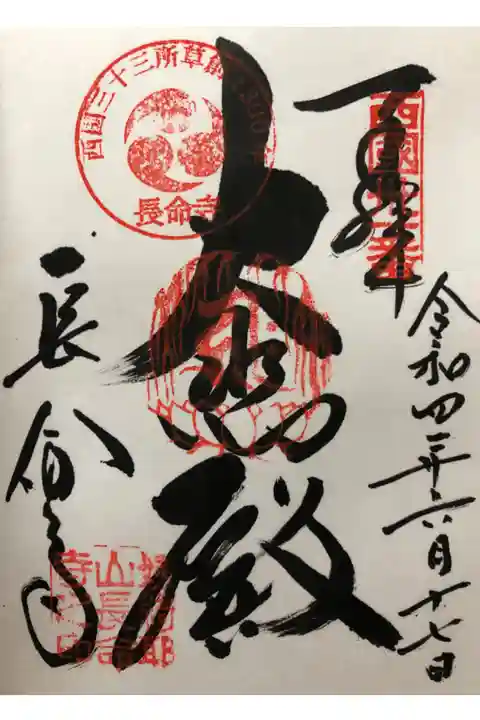 奉拝
西國卅一番
令和四年六月十七日
大悲殿
西国三十三所草創1300年
長命寺
長命寺